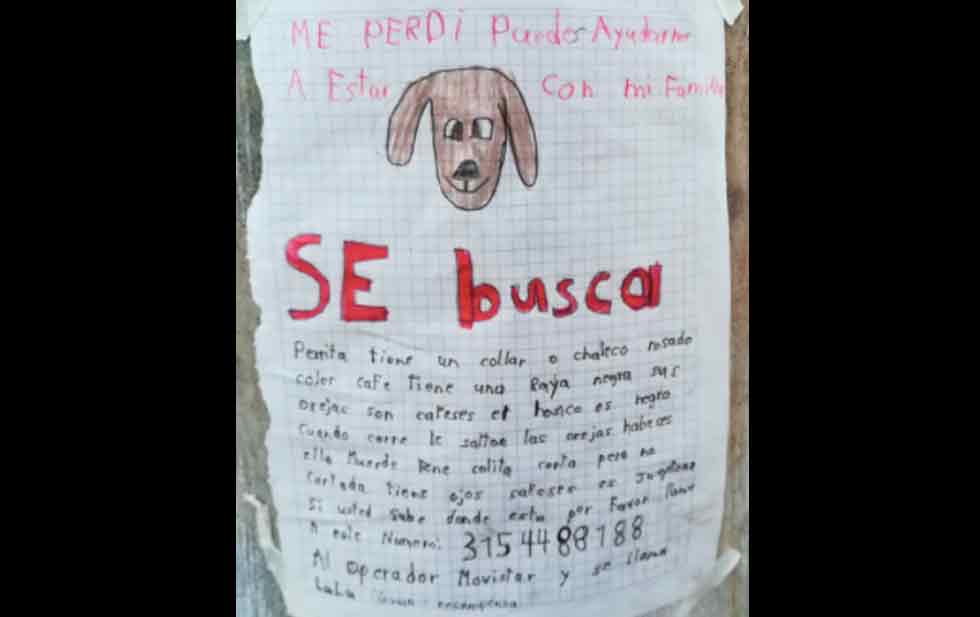 ME PERDI Puedes Ayudarme
A Estar con mi Familia
SE busca
Perrita tiene un collar o chaleco rosado
color cafe tiene una Raya negra sus
orejas son cafeses el hosico es negro
cuando corre le saltan las orejas habeses
ella Muerde tiene colita corta pero no
cortada tiene ojos cafeses es Juguetona
si usted sabe donde esta por Favor llame
A este Numero: 315 4488188
Al operador Movistar y se llama
LuLu recompensa